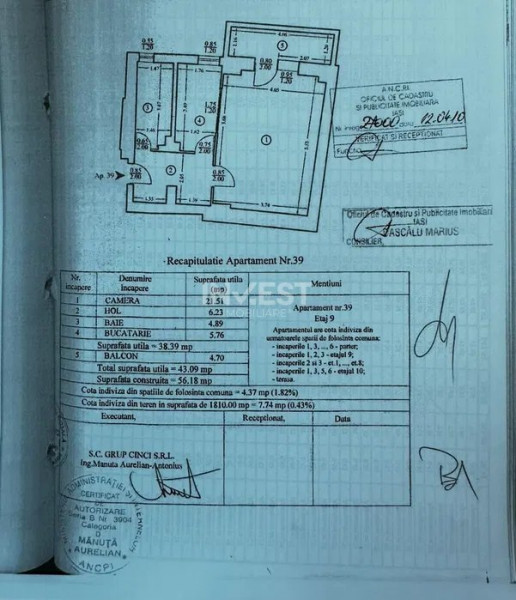 0.55
1.20
0.85
1.20
4.06
5
2.07
0.80
2.00
0.95
1.20
1.47
1.76
4.60
3
1.75
1.20
4
1
0.65
2.00
0.75
2.00
2
0.85
2.00
Ap. 39
0.85
2.00
1.35
4.56
A.N.C.P.I.
OFICIUL DE CADASTRU
SI PUBLICITATE IMOBILIARA
IASI
Nr. inreg. data 12.04.10
VERIFICAT SI RECEPTIONAT
Functia
Oficiul de Cadastru si Publicitate Imobiliara
IASI
PASCĂLU MARIUS
CONSILIER
Recapitulatie Apartament Nr.39
Nr. incapere Denumire Incapere Suprafata utila (mp) Mentiuni
1 CAMERA 21.51
2 HOL 6.23
3 BAIE 4.89
4 BUCATARIE 5.76
Suprafata utila = 38.39 mp
5 BALCON 4.70
Total suprafata utila = 43.09 mp
Suprafata construita = 56.18 mp
Apartament nr.39
Etaj 9
Apartamentul are cota indiviza din
urmatoarele spatii de folosinta comuna;
- incaperile 1, 3, ..., 6 - parter;
- incaperile 1, 2, 3 - etajul 9;
- incaperile 2 si 3 - et.1, ..., et.8;
- incaperile 1, 3, 5, 6 - etajul 10;
- terasa.
INVEST
IMOBILIARE
Cota indiviza din spatiile de folosinta comuna = 4.37 mp (1.82%)
Cota indiviza din teren in suprafata de 1810.00 mp = 7.74 mp (0.43%)
Executant, Receptionat, Data
S.C. GRUP CINCI S.R.L.
ing.Manuta Aurelian-Antonius
CERTIFICAT
DE
AUTORIZARE
Seria B Nr. 3904
Categoria
D
MĂNUȚĂ
AURELIAN
ANCPI